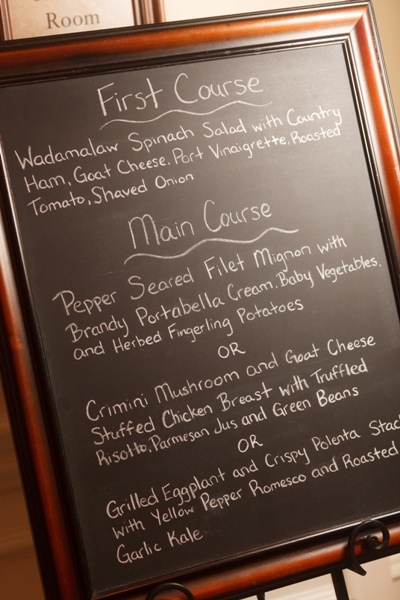 Room
First Course
Wadamalaw Spinach Salad with Country
Ham, Goat Cheese, Port Vinaigrette, Roasted
Tomato, Shaved Onion
Main Course
Pepper Seared Filet Mignon with
Brandy Portabella Cream, Baby Vegetables,
and Herbed Fingerling Potatoes
OR
Crimini Mushroom and Goat Cheese
Stuffed Chicken Breast with Truffled
Risotto, Parmesan Jus and Green Beans
OR
Grilled Eggplant and Crispy Polenta Stack
with Yellow Pepper Romesco and Roasted
Garlic Kale